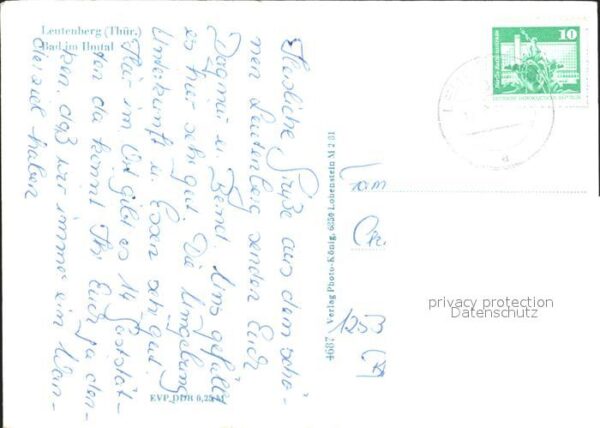 Leutenberg (Thür.)
Bad im Ilmtal
Herzliche Grüße aus dem schö-
nen Leutenberg senden Euch
Dagmar u. Bernd. Uns gefällt
es hier sehr gut. Die Umgebung
Unterkunft u. Essen sehr gut.
Hier im Ort gibt es 14 Gaststät-
ten da könnt Ihr Euch ja den-
ken, daß wir immer ein
die viel haben
EVP DDR 0,25 M
4687 Verlag Photo-König, 6850 Lobenstein M 2 81
10
DEUTSCHE DEMOKRATISCHE REPUBLIK
Fam
1253
privacy protection
Datenschutz